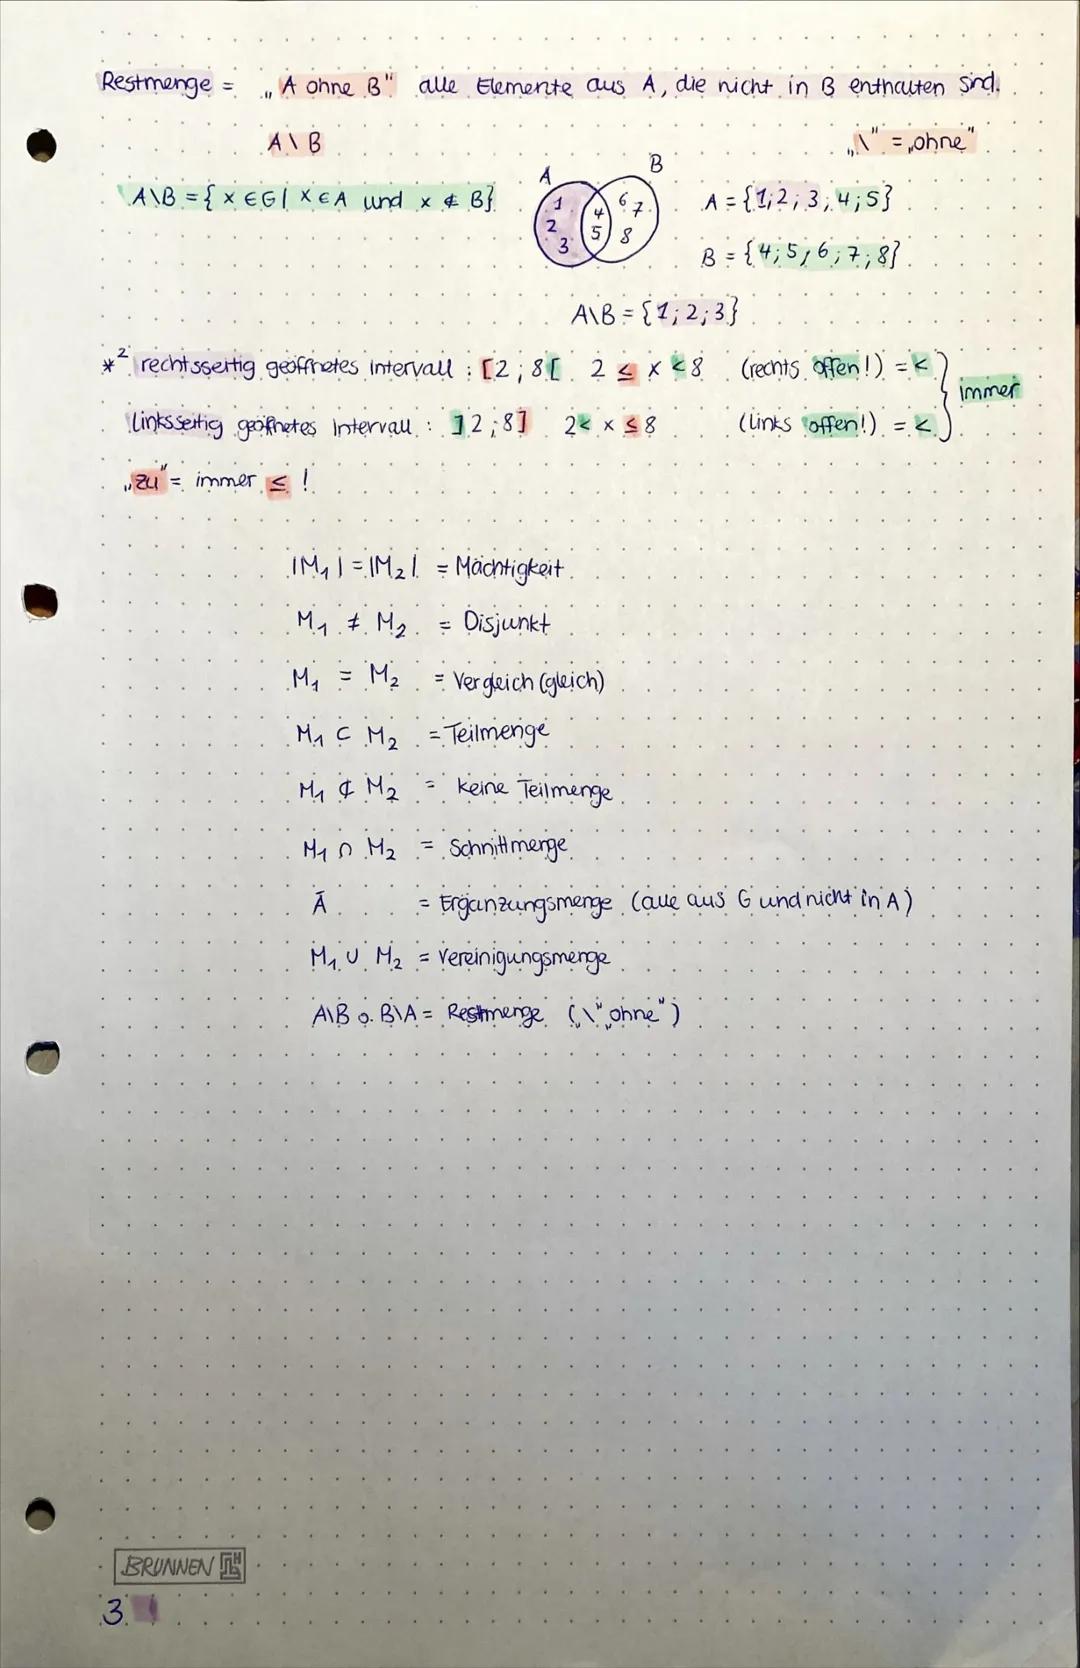 Restmenge = „A ohne B" alle Elemente aus A, die nicht in B enthalten sind.
A \ B „\" = „ohne"
A\B = { x ∈ G | x ∈ A und x ∉ B}
A B
1 2 3 4 5 6 7 8
A = {1; 2; 3; 4; 5}
B = {4; 5; 6; 7; 8}
A\B = {1; 2; 3}
*² rechtsseitig geöffnetes Intervall : [2 ; 8[ 2 ≤ x < 8 (rechts offen!) = < } immer
linksseitig geöffnetes Intervall : ]2 ; 8] 2 < x ≤ 8 (links offen!) = <
„zu" = immer ≤ !
|M₁| = |M₂| = Mächtigkeit
M₁ ≠ M₂ = Disjunkt
M₁ = M₂ = Vergleich (gleich)
M₁ ⊂ M₂ = Teilmenge
M₁ ⊄ M₂ = keine Teilmenge
M₁ ∩ M₂ = Schnittmenge
Ā = Ergänzungsmenge (alle aus G und nicht in A)
M₁ ∪ M₂ = Vereinigungsmenge
A\B o. B\A = Restmenge („\" „ohne")
BRUNNEN
3.